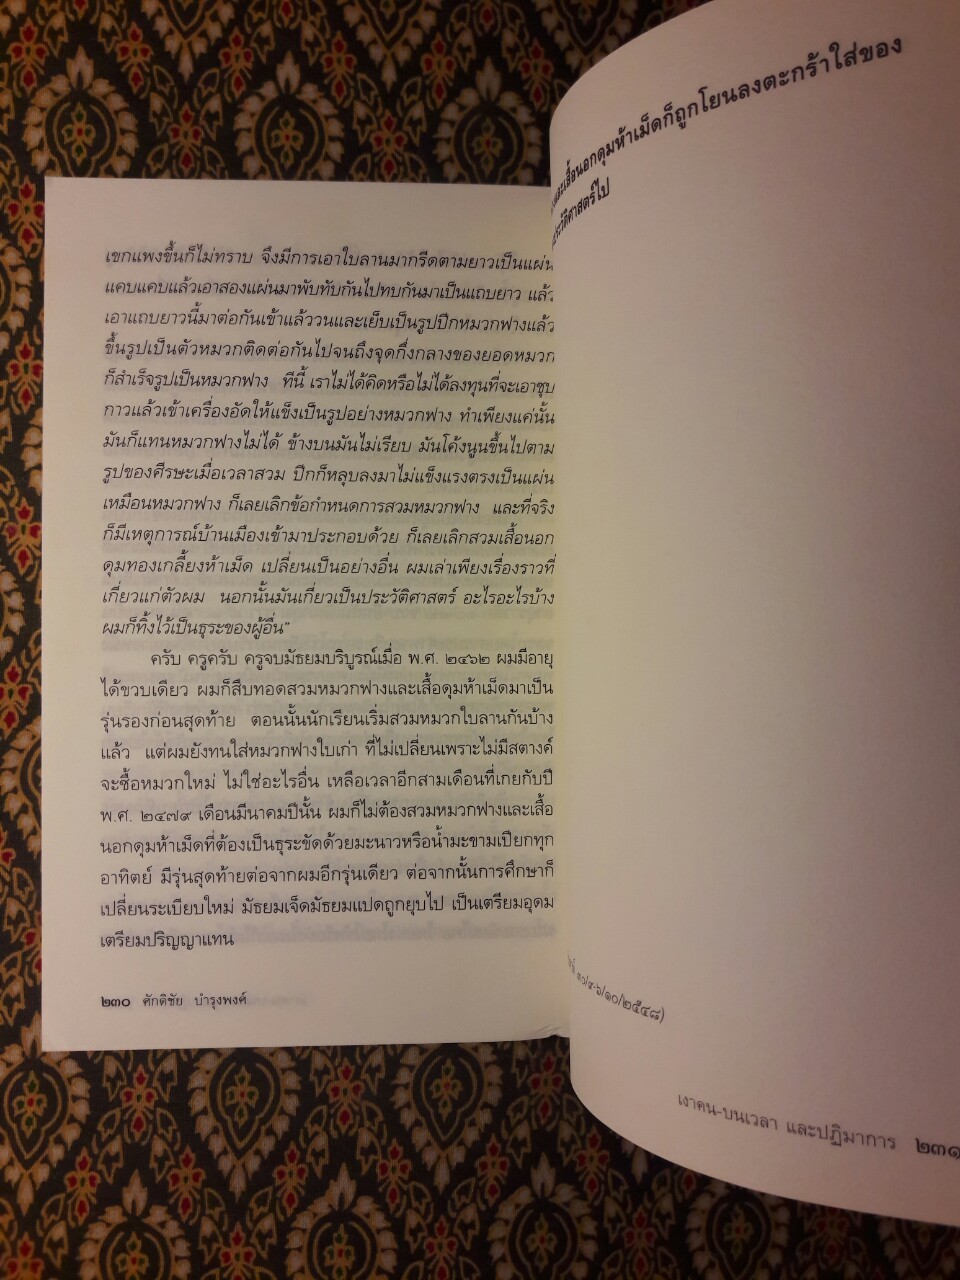 เขกแพงขึ้นก็ไม่ทราบ จึงมีการเอาใบลานมากรีดตามยาวเป็นแผ่น
แคบแคบแล้วเอาสองแผ่นมาพับทับกันไปทบกันมาเป็นแถบยาว แล้ว
เอาแถบยาวนี้มาต่อกันเข้าแล้ววนและเย็บเป็นรูปปีกหมวกฟางแล้ว
ขึ้นรูปเป็นตัวหมวกติดต่อกันไปจนถึงจุดกึ่งกลางของยอดหมวก
ก็สำเร็จรูปเป็นหมวกฟาง ทีนี้ เราไม่ได้คิดหรือไม่ได้ลงทุนที่จะเอาชุบ
กาวแล้วเข้าเครื่องอัดให้แข็งเป็นรูปอย่างหมวกฟาง ทำเพียงแค่นั้น
มันก็แทนหมวกฟางไม่ได้ ข้างบนมันไม่เรียบ มันโค้งนูนขึ้นไปตาม
รูปของศีรษะเมื่อเวลาสวม ปีกก็หลุบลงมาไม่แข็งแรงตรงเป็นแผ่น
เหมือนหมวกฟาง ก็เลยเลิกข้อกำหนดการสวมหมวกฟาง และที่จริง
ก็มีเหตุการณ์บ้านเมืองเข้ามาประกอบด้วย ก็เลยเลิกสวมเสื้อนอก
ดุมทองเกลี้ยงห้าเม็ด เปลี่ยนเป็นอย่างอื่น ผมเล่าเพียงเรื่องราวที่
เกี่ยวแก่ตัวผม นอกนั้นมันเกี่ยวเป็นประวัติศาสตร์ อะไรอะไรบ้าง
ผมก็ทิ้งไว้เป็นธุระของผู้อื่น"
ครับ ครูครับ ครูจบมัธยมบริบูรณ์เมื่อ พ.ศ. ๒๔๖๒ ผมมีอายุ
ได้ขวบเดียว ผมก็สืบทอดสวมหมวกฟางและเสื้อดุมห้าเม็ดมาเป็น
รุ่นรองก่อนสุดท้าย ตอนนั้นนักเรียนเริ่มสวมหมวกใบลานกันบ้าง
แล้ว แต่ผมยังทนใส่หมวกฟางใบเก่า ที่ไม่เปลี่ยนเพราะไม่มีสตางค์
จะซื้อหมวกใหม่ ไม่ใช่อะไรอื่น เหลือเวลาอีกสามเดือนที่เกยกับปี
พ.ศ. ๒๔๗๙ เดือนมีนาคมปีนั้น ผมก็ไม่ต้องสวมหมวกฟางและเสื้อ
นอกดุมห้าเม็ดที่ต้องเป็นธุระขัดด้วยมะนาวหรือน้ำมะขามเปียกทุก
อาทิตย์ มีรุ่นสุดท้ายต่อจากผมอีกรุ่นเดียว ต่อจากนั้นการศึกษาก็
เปลี่ยนระเบียบใหม่ มัธยมเจ็ดมัธยมแปดถูกยุบไป เป็นเตรียมอุดม
เตรียมปริญญาแทน
๒๓๐ ศักดิชัย บำรุงพงศ์
เสื้อนอกดุมห้าเม็ดก็ถูกโยนลงตะกร้าใส่ของ
ประวัติศาสตร์ไป
๓๐/๔-๖/๑๐/๒๕๔๘)
เงาคน-บนเวลา และปฏิมาการ ๒๓๑